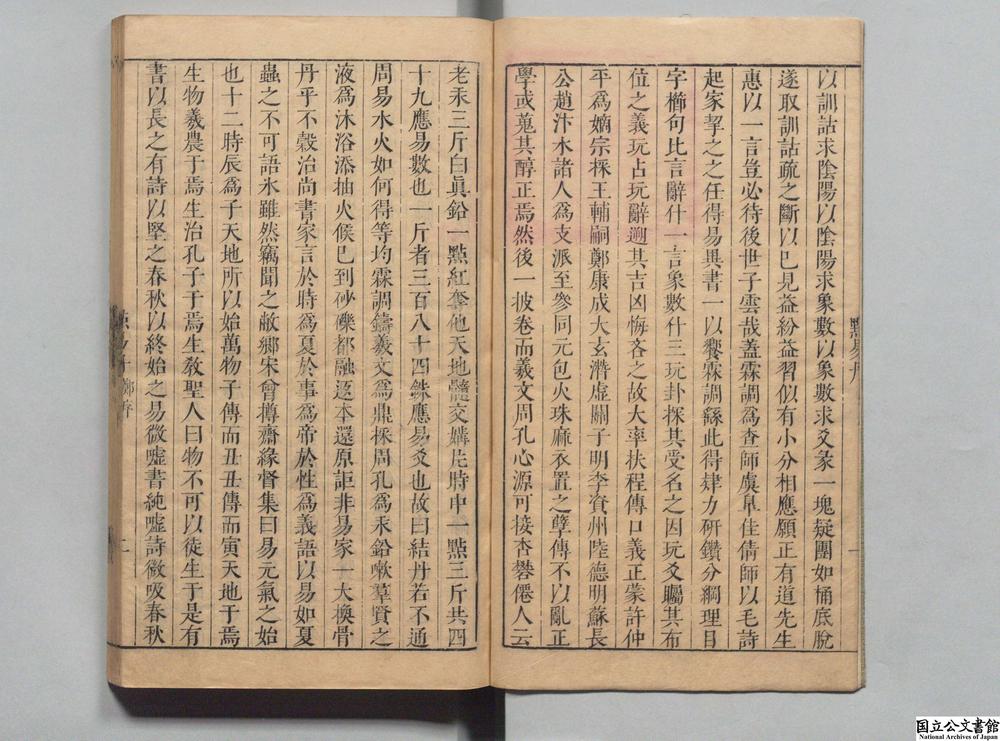 以訓詁求陰陽以陰陽求象數以象數求爻彖一塊疑團如桶底脫
遂取訓詁疏之斷以已見益紛益習似有小分相應願正有道先生
惠以一言豈必待後世子雲哉蓋霖調爲查師虞臯佳倩師以毛詩
起家挈之之任得易異書一以饗霖調繇此得肆力研鑽分綱理目
字櫛句比言辭什一言象數什三玩卦探其受名之因玩爻矚其布
位之義玩占玩辭遡其吉凶悔吝之故大率扶程傳口義正蒙許仲
平爲嫡宗採王輔嗣鄭康成大玄潛虛關子明李資州陸德明蘇長
公趙汴水諸人爲支派至參同元包火珠麻衣置之孽傳不以亂正
學或蒐其醇正焉然後一披卷而羲文周孔心源可接杏礬僊人云
老汞三斤白眞鉛一點紅奪他天地髓交媾片時中一點三斤共四
十九應易數也一斤者三百八十四銖應易爻也故曰結丹若不通
周易水火如何得等均霖調鑄羲文爲鼎採周孔爲汞鉛嗽羣賢之
液爲沐浴添抽火候已到砂礫都融返本還原詎非易家一大換骨
丹乎不穀治尚書家言於時爲夏於事爲帝於性爲義語以易如夏
蟲之不可語氷雖然竊聞之敝鄉宋曾摶齋緣督集曰易元氣之始
也十二時辰爲子天地所以始萬物子傳而丑丑傳而寅天地于焉
生物羲農于焉生治孔子于焉生敎聖人曰物不可以徒生于是有
書以長之有詩以堅之春秋以終始之易微噓書純噓詩微吸春秋
国立公文書館
National Archives of Japan